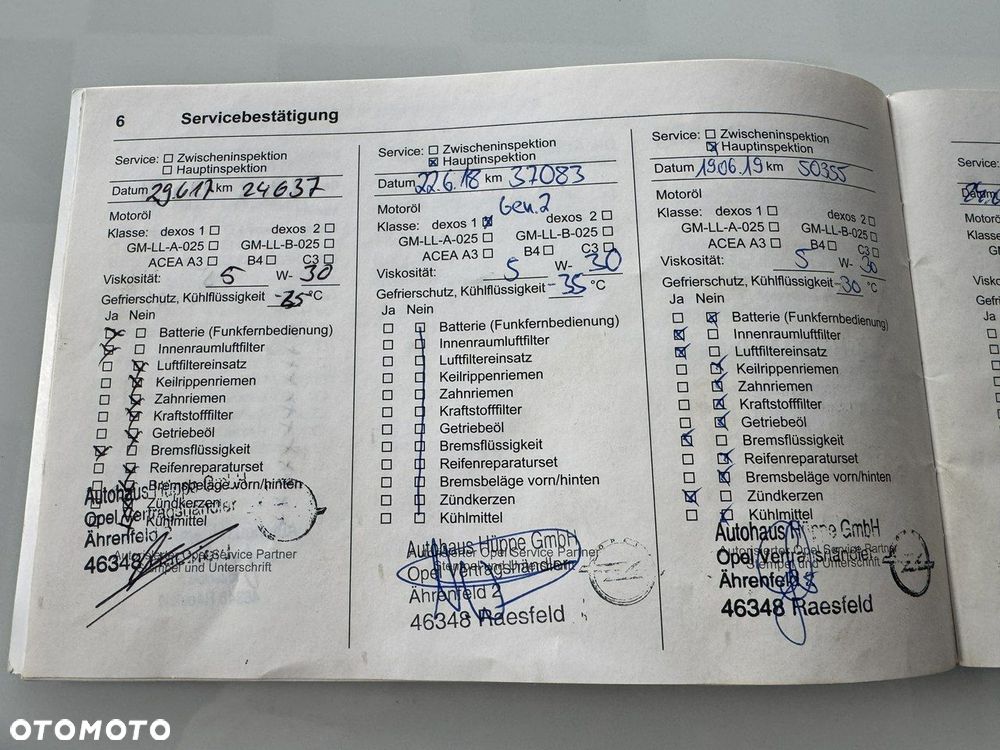 6 Servicebestätigung
Service: Zwischeninspektion
Hauptinspektion
Datum 29.6.17 km 24637
Motoröl
Klasse: dexos 1 dexos 2
GM-LL-A-025 GM-LL-B-025
ACEA A3 B4 C3
Viskosität: 5 W- 30
Gefrierschutz, Kühlflüssigkeit -35 °C
Ja Nein
Batterie (Funkfernbedienung)
Innenraumluftfilter
Luftfiltereinsatz
Keilrippenriemen
Zahnriemen
Kraftstofffilter
Getriebeöl
Bremsflüssigkeit
Reifenreparaturset
Bremsbeläge vorn/hinten
Zündkerzen
Kühlmittel
Autohaus Hüppe GmbH
Opel Vertragshändler
Ährenfeld 2
46348
Autorisierter Opel Service Partner
Stempel und Unterschrift
Service: Zwischeninspektion
Hauptinspektion
Datum 22.6.18 km 37083
Motoröl Gen.2
Klasse: dexos 1 dexos 2
GM-LL-A-025 GM-LL-B-025
ACEA A3 B4 C3
Viskosität: 5 W- 30
Gefrierschutz, Kühlflüssigkeit -35 °C
Ja Nein
Batterie (Funkfernbedienung)
Innenraumluftfilter
Luftfiltereinsatz
Keilrippenriemen
Zahnriemen
Kraftstofffilter
Getriebeöl
Bremsflüssigkeit
Reifenreparaturset
Bremsbeläge vorn/hinten
Zündkerzen
Kühlmittel
Autohaus Hüppe GmbH
Autorisierter Opel Service Partner
Stempel und Unterschrift
Opel Vertragshändler
Ährenfeld 2
46348 Raesfeld
Service: Zwischeninspektion
Hauptinspektion
Datum 19.06.19 km 50355
Motoröl
Klasse: dexos 1 dexos 2
GM-LL-A-025 GM-LL-B-025
ACEA A3 B4 C3
Viskosität: 5 W- 30
Gefrierschutz, Kühlflüssigkeit -30 °C
Ja Nein
Batterie (Funkfernbedienung)
Innenraumluftfilter
Luftfiltereinsatz
Keilrippenriemen
Zahnriemen
Kraftstofffilter
Getriebeöl
Bremsflüssigkeit
Reifenreparaturset
Bremsbeläge vorn/hinten
Zündkerzen
Kühlmittel
Autohaus Hüppe GmbH
Autorisierter Opel Service Partner
Opel Vertragshändler
Stempel und Unterschrift
Ährenfeld 2
46348 Raesfeld
Service:
Datum
Klasse
Ja
OTOMOTO